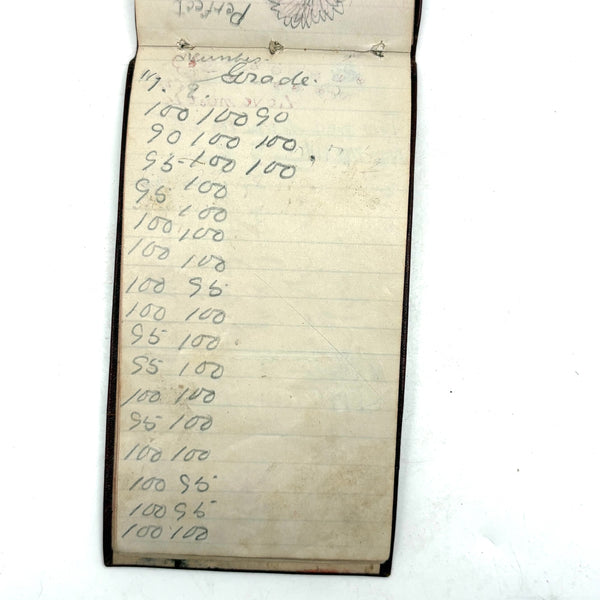 Perfect
Grade.
100 100 90
90 100 100
95 100 100
95 100
100
100 100
100 100
100 95
100 100
95 100
95 100
100 100
95 100
100 100
100 95
100 95
100 100